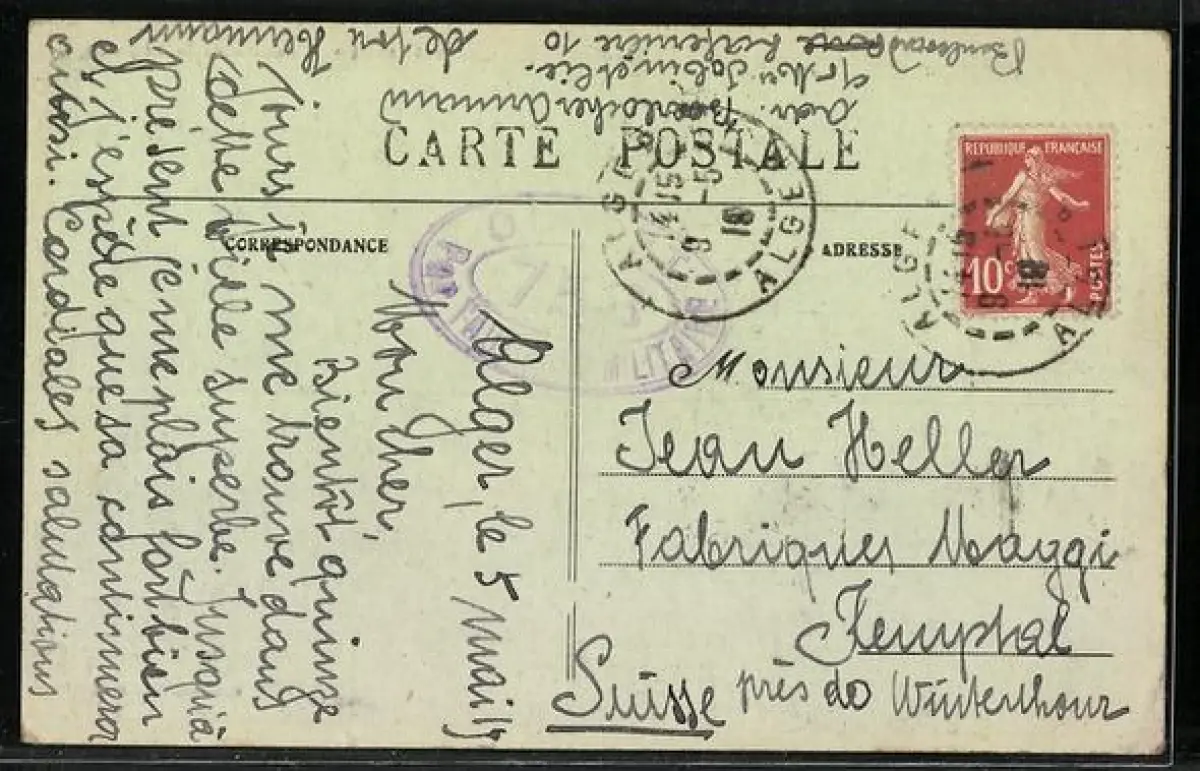 CARTE POSTALE
CORRESPONDANCE
ADRESSE
REPUBLIQUE FRANÇAISE
10 c
POSTES
ALGER
14 15
9 - 5
18
ALGER
MILITAIRE
Alger, le 5 mai 18
Mon cher,
Bientôt quinze
jours je me trouve dans
cette ville superbe. Jusqu'à
présent je me plais fort bien
et j'espère que sa continuera
aussi. Cordiales salutations
de ton Hermann
Boulevard
10
Monsieur
Jean Heller
Fabriques Maggi
Kemptal
près de Winterthour
Suisse